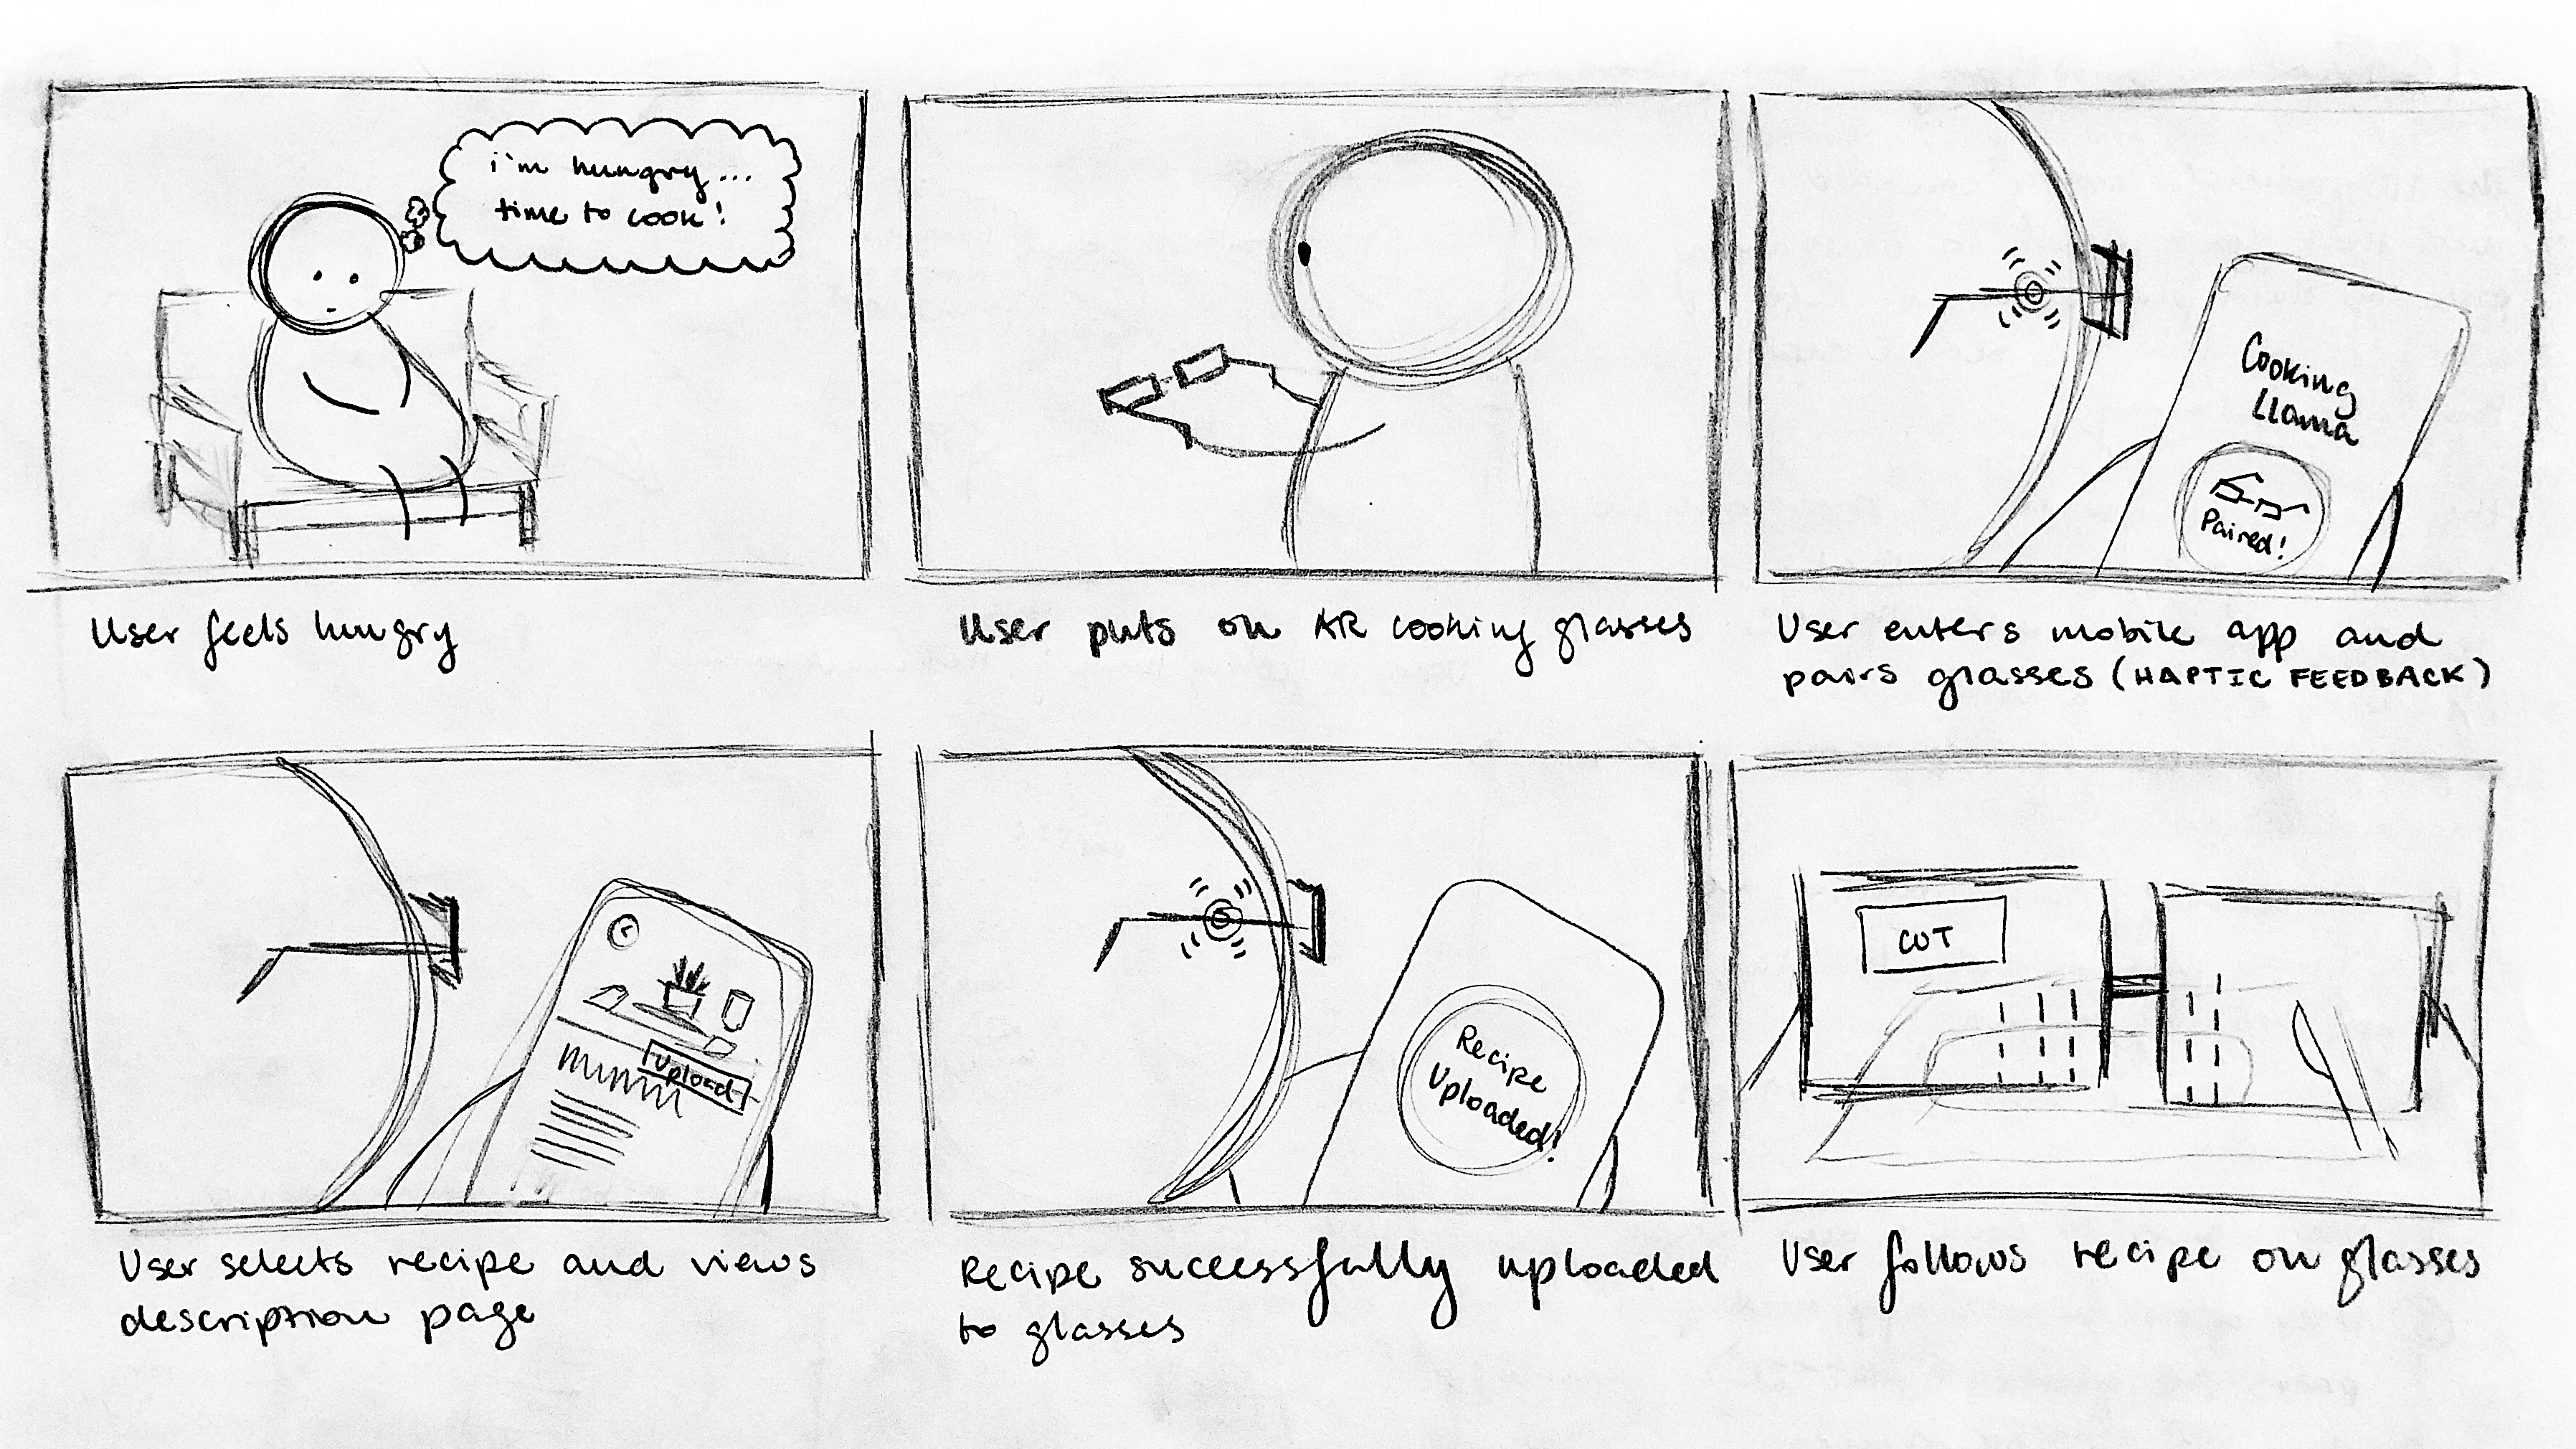 i'm hungry...
time to cook!
User feels hungry
User puts on AR cooking glasses
Cooking
Llama
Paired!
User enters mobile app and
pairs glasses (HAPTIC FEEDBACK)
Upload
User selects recipe and views
description page
Recipe
Uploaded!
Recipe successfully uploaded
to glasses
CUT
User follows recipe on glasses